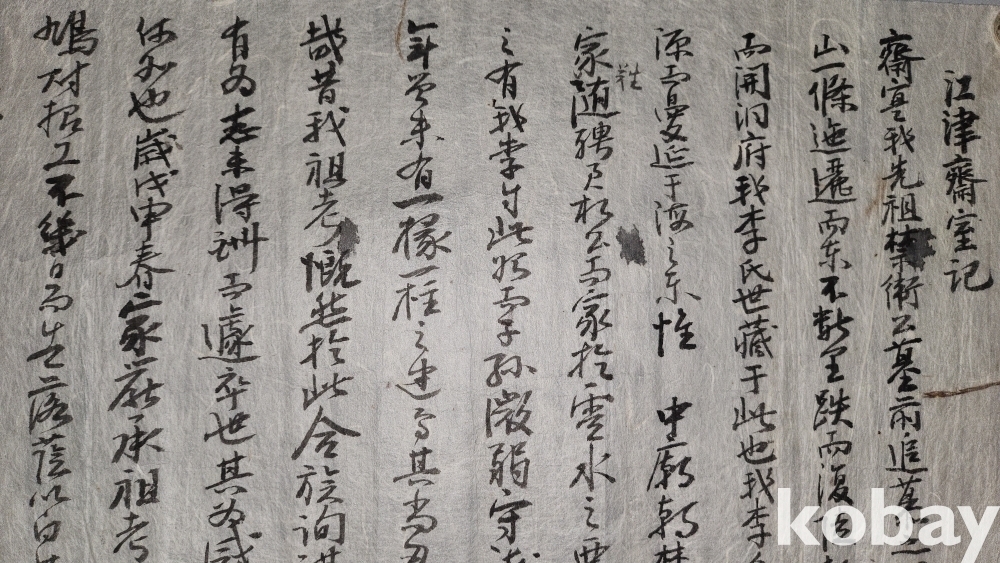 江津齋室記
齋室我先祖禁衛公墓前追慕之
山一條迤邐而東不數里跌而復
而開洞府我李氏世藏于此也我李
源而蔓延于海之東惟 中廟朝禁
家隨聘 公而家於雲水之
之有我李 此 而子孫微弱守
年曾未有一椽一柱之建 其
哉昔我祖考慨然於此合族詢
有為志未得訓而遽卒世其為感
何如也歲戊申春家嚴承祖考
鳩財招工不幾日而告落蔭以白
kobay